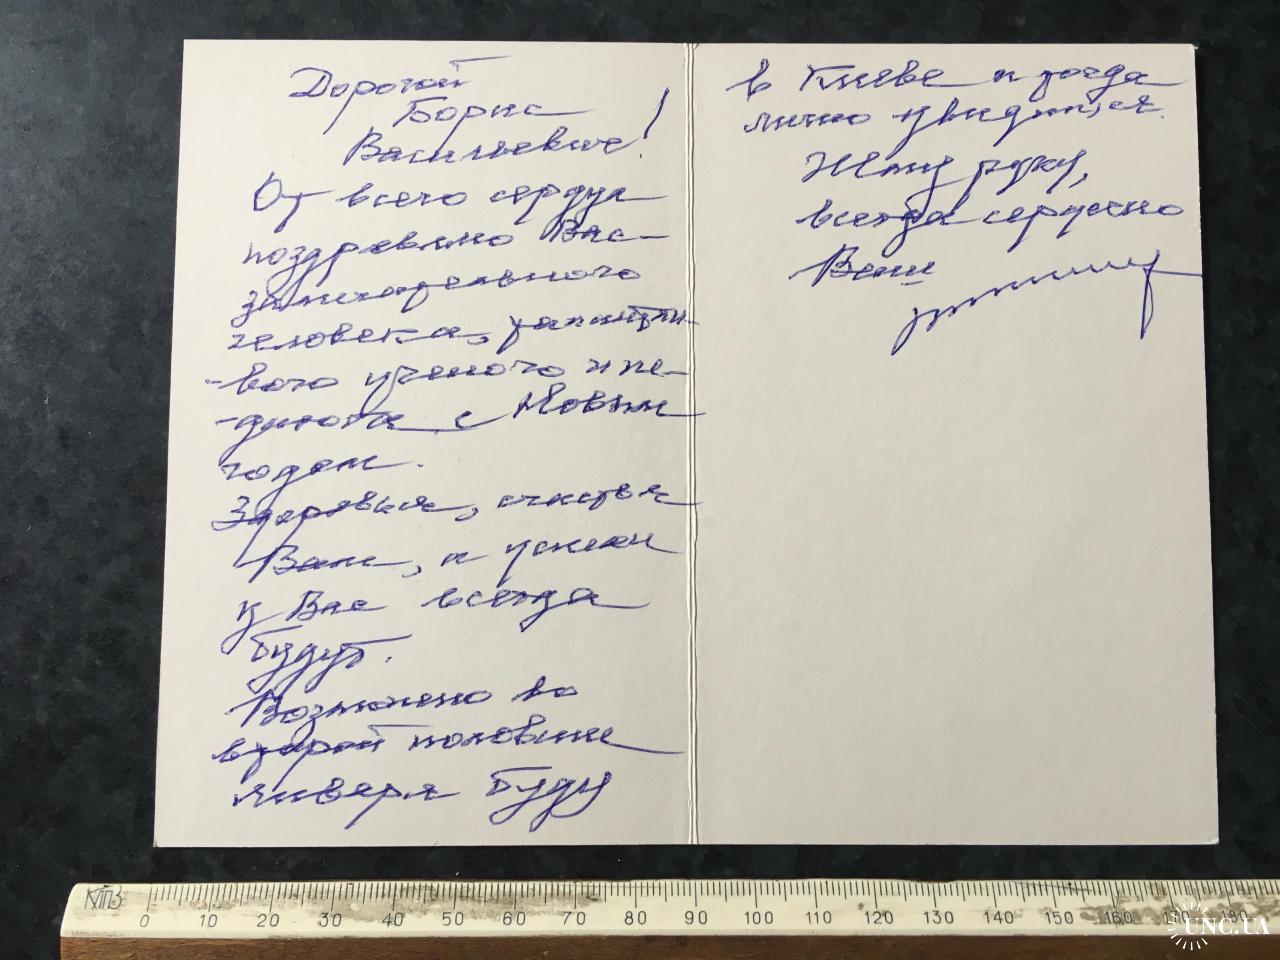 Дорогой
Борис
Васильевич!
От всего сердца
поздравляю Вас –
замечательного
человека, талантли-
-вого ученого и пе-
-дагога с Новым
годом.
Здоровья, счастья
Вам, а успехи
у Вас всегда
будут.
Возможно во
второй половине
января буду
в Киеве и тогда
лично увидимся.
Жму руку,
всегда сердечно
Ваш
КПЗ
0 10 20 30 40 50 60 70 80 90 100 110 120 130 140 150 160 170 180
UNC.UA